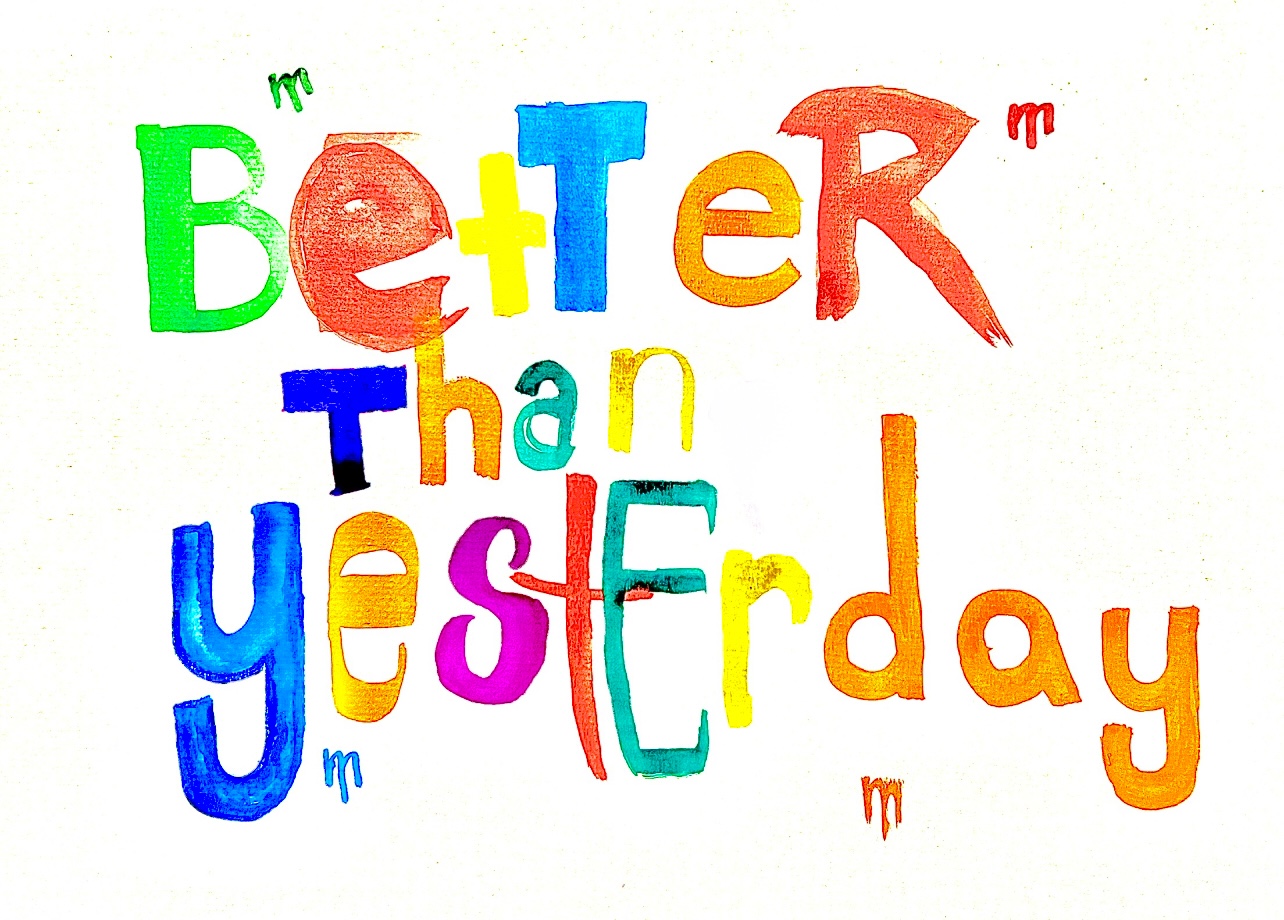 m
BetTeR m
Than
yestErday
m
m